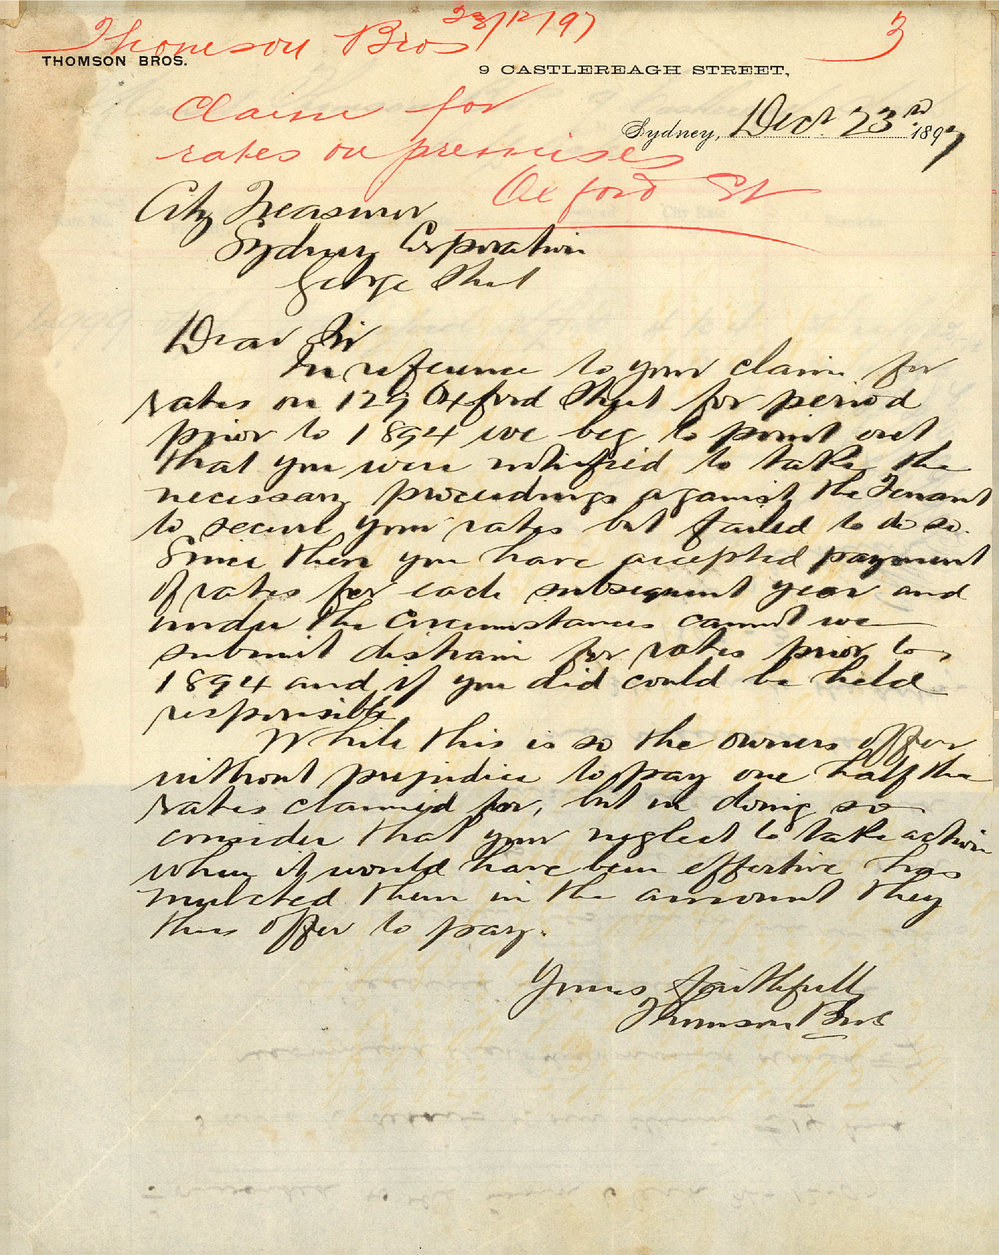 Thomson Bros 23/12/97 3
THOMSON BROS.
9 CASTLEREAGH STREET,
Claim for
rates on premises
Oxford St
Sydney, Decr 23rd 1897
City Treasurer
Sydney Corporation
George Street
Dear Sir
In reference to your claim for
rates on 129 Oxford Street for period
prior to 1894 we beg to point out
that you were notified to take the
necessary proceedings against the Tenant
to secure your rates but failed to do so.
Since then you have accepted payment
of rates for each subsequent year and
under the circumstances cannot we
submit distrain for rates prior to
1894 and if you did could be held
responsible
While this is so the owners offer
without prejudice to pay one half the
rates claimed for, but in doing so
consider that your neglect to take action
when it would have been effective has
mulcted them in the amount they
thus offer to pay.
Yours faithfully
Thomson Bros